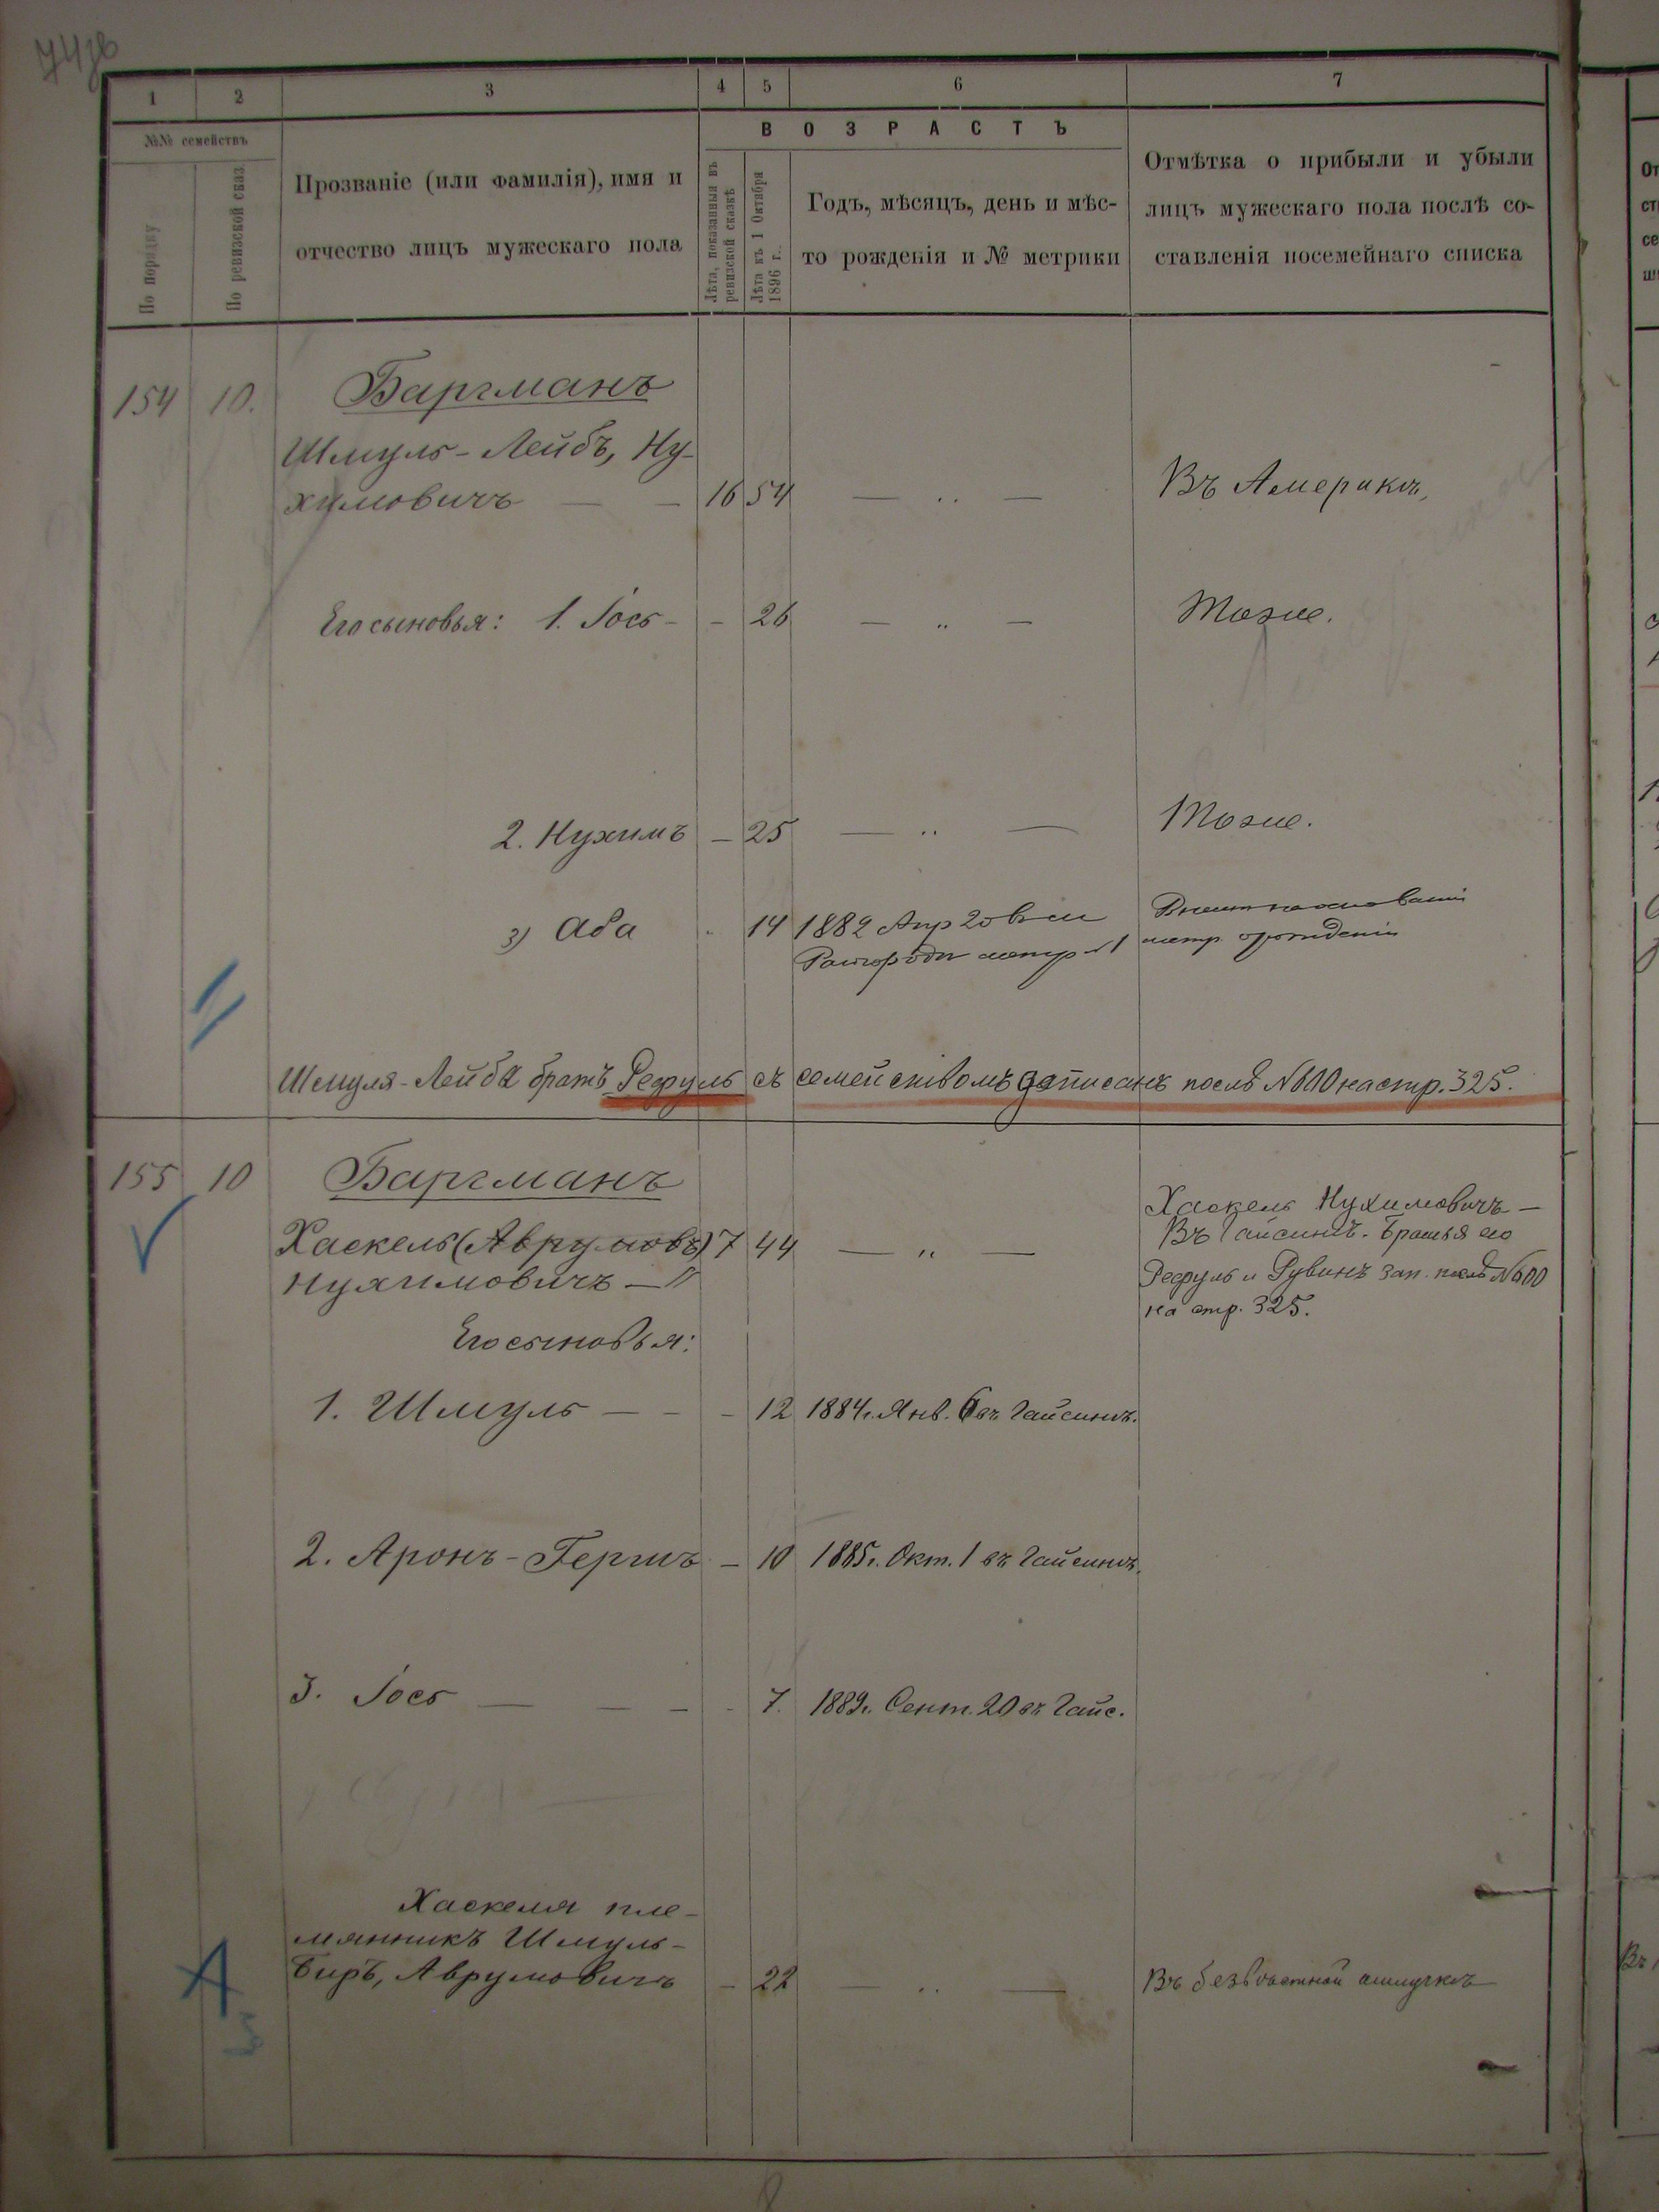 1 2 3 4 5 6 7
№№ семействъ
По порядку
По ревизской сказ
Прозваніе (или фамилія), имя и
отчество лицъ мужескаго пола
ВОЗРАСТЪ
Лѣта, показанныя въ
ревизской сказкѣ
Лѣта къ 1 Октября
1896 г.
Годъ, мѣсяцъ, день и мѣс-
то рожденія и № метрики
Отмѣтка о прибыли и убыли
лицъ мужескаго пола послѣ со-
ставленія посемейнаго списка
154 10. Баргманъ
Шмуль-Лейбъ, Ну-
химовичъ — — 16 54 — „ — Въ Америкѣ,
Его сыновья: 1. Іось - - 26 — „ — Тоже.
2. Нухимъ — 25 — „ — Тоже.
3) Аба 14 1882 Апр 20 въ м Внесенъ на основаніи
метр № 1 метр. о рожденіи
Шмуля-Лейба братъ Рефуль съ семействомъ записанъ послѣ № 600 на стр. 325.
155 10 Баргманъ
Хаскель (Аврумовъ) 7 44 — „ —
Нухимовичъ —
Хаскель Нухимовичъ —
Въ Гайсинѣ. Братья его
Рефуль и Рувинъ зап. послѣ № 600
на стр. 325.
Его сыновья:
1. Шмуль — - - 12 1884 г. Янв. 6 въ Гайсинѣ.
2. Аронъ-Гершъ — 10 1885 г. Окт. 1 въ Гайсинѣ.
3. Іось — — - - 7. 1889 г. Сент. 20 въ Гайс.
Хаскеля пле-
мянникъ Шмуль-
Биръ, Аврумовичъ — 22 — „ — Въ безвѣстной отлучкѣ